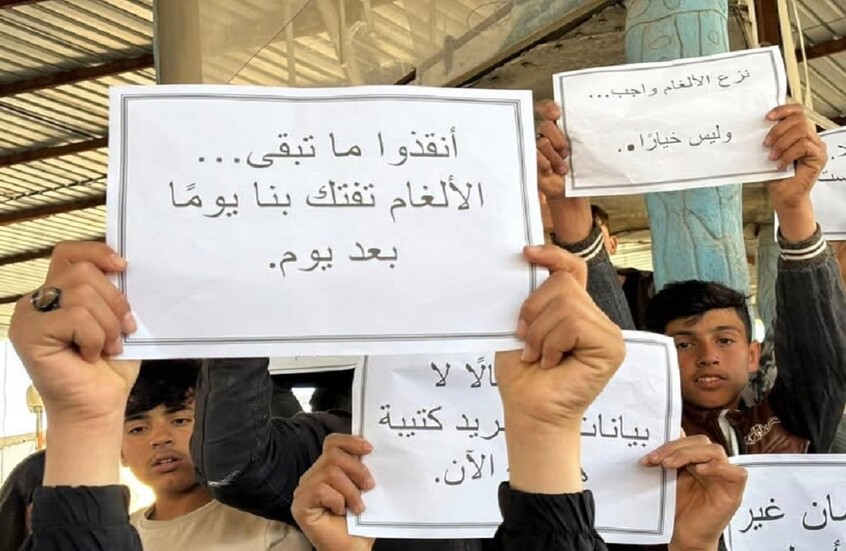 أنقذوا ما تبقى...
الألغام تفتك بنا يومًا
بعد يوم.
نزع الألغام واجب...
وليس خيارًا.
لا
بيانات كتيبة
الآن.
غير